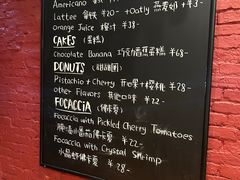 Americano
Lattee 拿铁 ¥20- +Oatly 燕麦奶 +¥3-
Orange Juice 橙汁 ¥38-
CAKES (蛋糕)
Chocolate Banana 巧克力香蕉蛋糕 ¥68-
DONUTS (甜甜圈)
Pistachio + Cherry 开心果+樱桃 ¥28-
other Flavors 其他口味 ¥22-
FOCACCIA (佛卡夏)
Focaccia with Pickled Cherry Tomatoes
腌渍小番茄佛卡夏 ¥22-
Focaccia with Crystal Shrimp
水晶虾佛卡夏 ¥28-